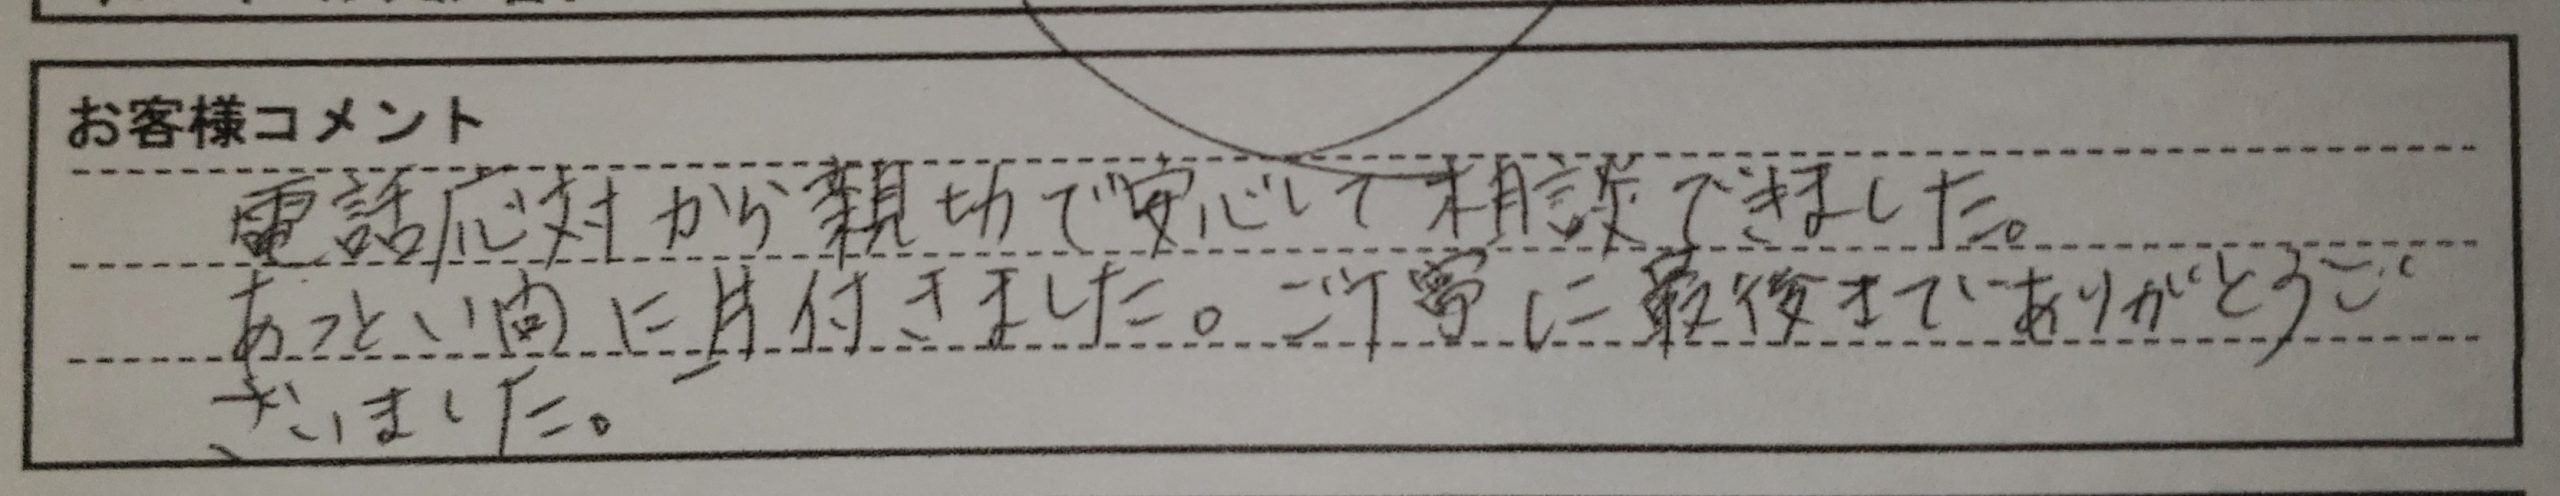 お客様コメント
電話応対から親切で安心して相談できました。
あっという間に片付きました。ご丁寧に最後までありがとうご
ざいました。